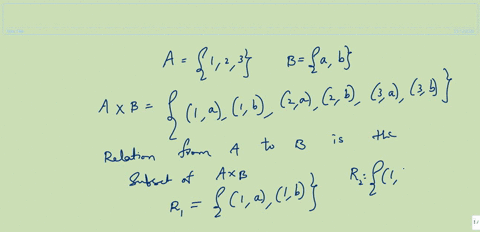 A = {1, 2, 3} B = {a, b}
A × B = {(1, a), (1, b), (2, a), (2, b), (3, a), (3, b)}
Relation from A to B is the
Subset of A×B
R₁ = {(1, a), (1, b)} R₂: {(1,